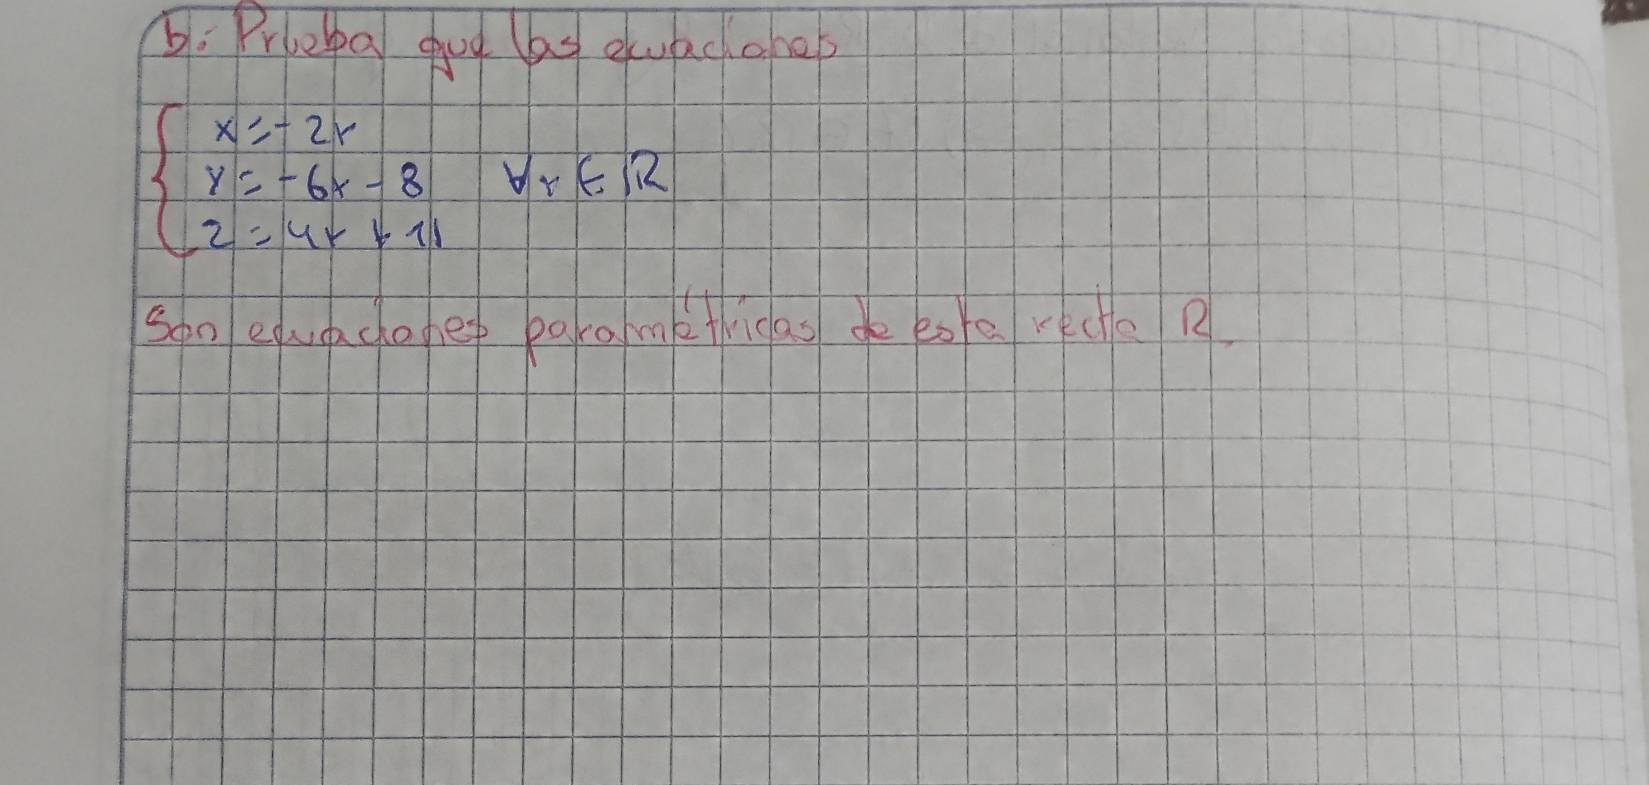 b: Prueba que las ecuaciones
x = - 2r
y = -6r - 8 ∀r ∈ ℝ
z = 4r + 11
Son ecuaciones paramétricas de esta recta R.